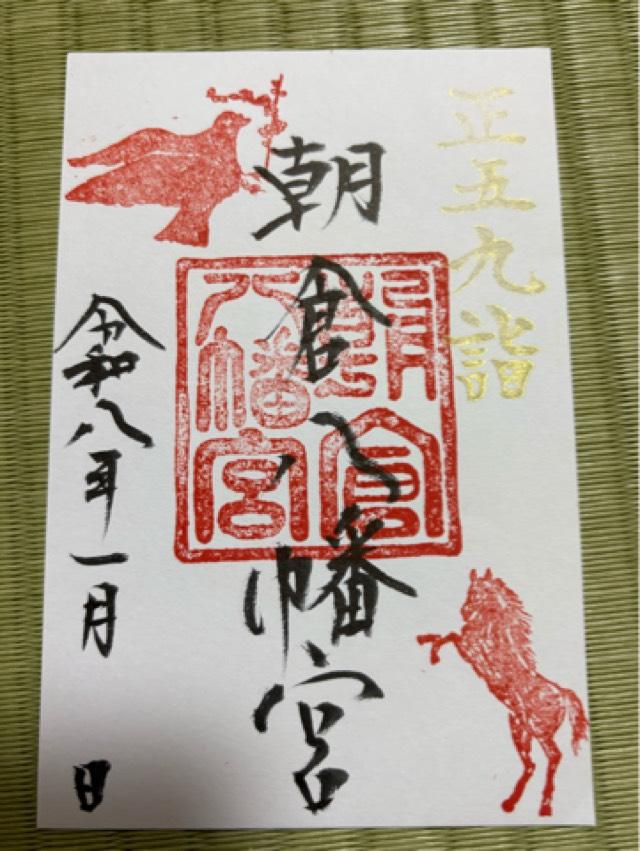 正五九詣
朝倉八幡宮
朝倉
八幡宮
令和八年一月 日